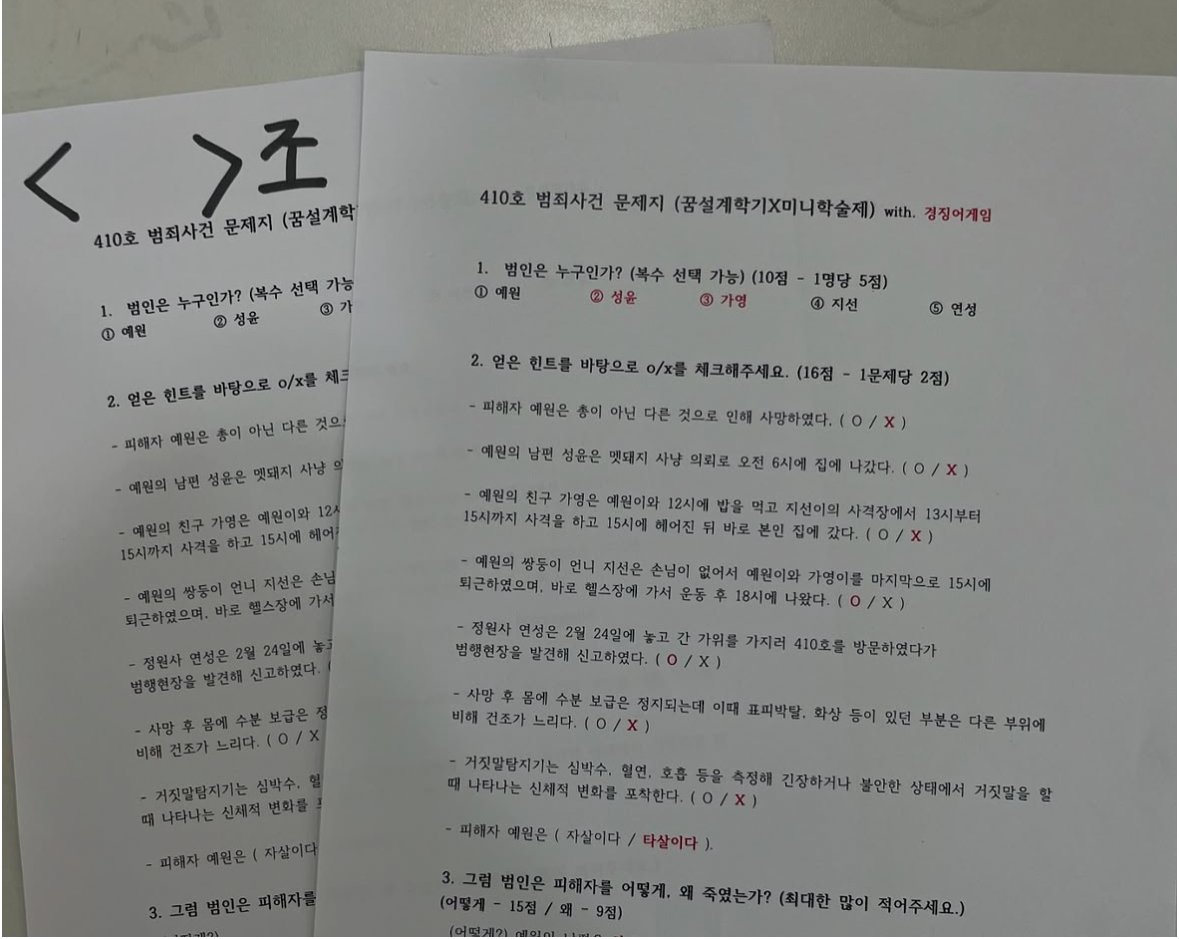 < >조
410호 범죄사건 문제지 (꿈설계학
1. 범인은 누구인가? (복수 선택 가능
① 예원 ② 성윤 ③ 가
2. 얻은 힌트를 바탕으로 o/x를 체크
- 피해자 예원은 총이 아닌 다른 것으
- 예원의 남편 성윤은 멧돼지 사냥 의
- 예원의 친구 가영은 예원이와 12시
15시까지 사격을 하고 15시에 헤어
- 예원의 쌍둥이 언니 지선은 손님
퇴근하였으며, 바로 헬스장에 가서
- 정원사 연성은 2월 24일에 놓고
범행현장을 발견해 신고하였다. (
- 사망 후 몸에 수분 보급은 정
비해 건조가 느리다. ( O / X
- 거짓말탐지기는 심박수, 혈
때 나타나는 신체적 변화를
- 피해자 예원은 ( 자살이다
3. 그럼 범인은 피해자를
410호 범죄사건 문제지 (꿈설계학기X미니학술제) with. 경징어게임
1. 범인은 누구인가? (복수 선택 가능) (10점 - 1명당 5점)
① 예원 ② 성윤 ③ 가영 ④ 지선 ⑤ 연성
2. 얻은 힌트를 바탕으로 o/x를 체크해주세요. (16점 - 1문제당 2점)
- 피해자 예원은 총이 아닌 다른 것으로 인해 사망하였다. ( O / X )
- 예원의 남편 성윤은 멧돼지 사냥 의뢰로 오전 6시에 집에 나갔다. ( O / X )
- 예원의 친구 가영은 예원이와 12시에 밥을 먹고 지선이의 사격장에서 13시부터
15시까지 사격을 하고 15시에 헤어진 뒤 바로 본인 집에 갔다. ( O / X )
- 예원의 쌍둥이 언니 지선은 손님이 없어서 예원이와 가영이를 마지막으로 15시에
퇴근하였으며, 바로 헬스장에 가서 운동 후 18시에 나왔다. ( O / X )
- 정원사 연성은 2월 24일에 놓고 간 가위를 가지러 410호를 방문하였다가
범행현장을 발견해 신고하였다. ( O / X )
- 사망 후 몸에 수분 보급은 정지되는데 이때 표피박탈, 화상 등이 있던 부분은 다른 부위에
비해 건조가 느리다. ( O / X )
- 거짓말탐지기는 심박수, 혈연, 호흡 등을 측정해 긴장하거나 불안한 상태에서 거짓말을 할
때 나타나는 신체적 변화를 포착한다. ( O / X )
- 피해자 예원은 ( 자살이다 / 타살이다 ).
3. 그럼 범인은 피해자를 어떻게, 왜 죽였는가? (최대한 많이 적어주세요.)
(어떻게 - 15점 / 왜 - 9점)
(어떻게?) 예원이 남편